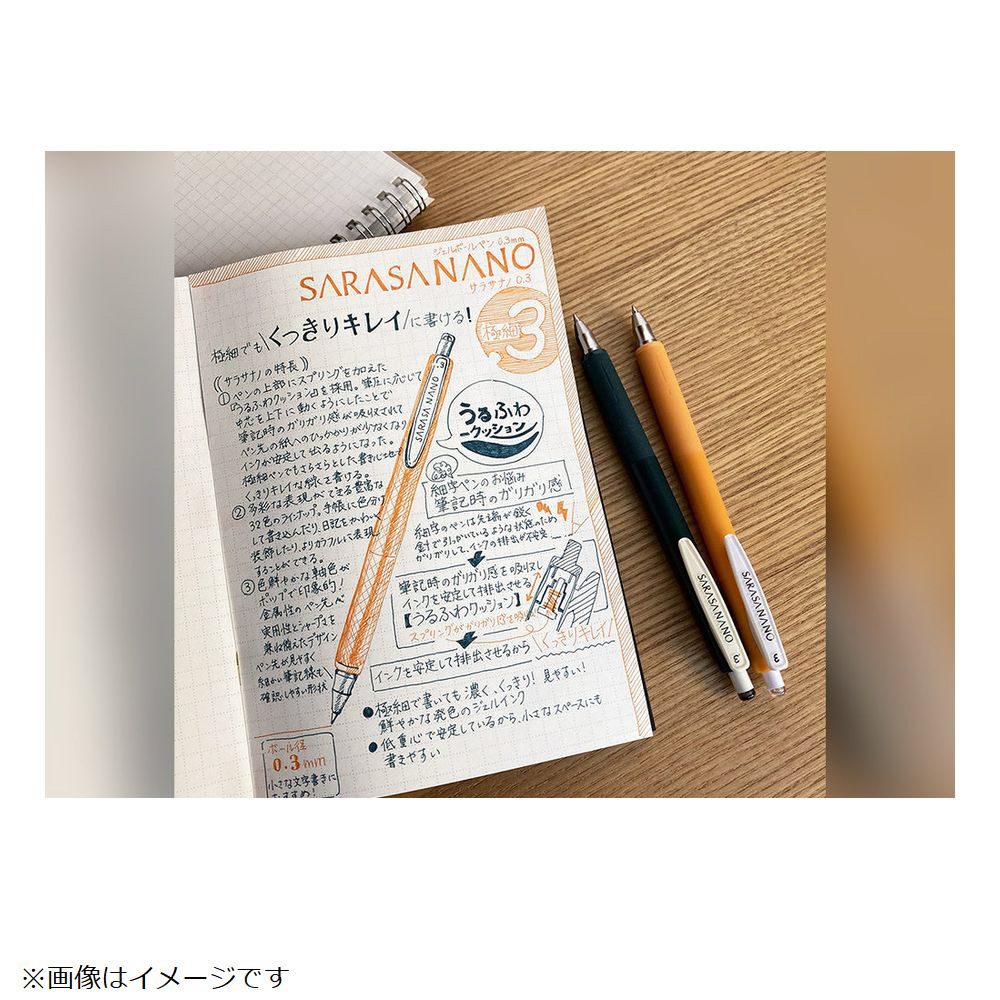 ジェルボールペン 0.3mm
SARASANANO
サラサナノ 0.3
極細でも\くっきりキレイ/に書ける!
極細 .3
((サラサナノの特長))
①ペンの上部にスプリングを加えた
「うるふわクッション」を採用。筆圧に応じて
中芯を上下に動くようにしたことで
筆記時のガリガリ感が吸収されて
ペン先の紙へのひっかかりが少なくなり
インクが安定して出るようになった。
極細ペンでもさらさらとした書き心地で
くっきりキレイな細い字を書ける。
②多彩な表現ができる豊富な
32色のラインナップ。手帳に色分け
して書き込んだり、日記をかわいく
装飾したり、よりカラフルに表現
することができる。
③色鮮やかな軸色が
ポップで印象的!
金属性のペン先で
実用性とシャープさを
兼ね備えたデザイン
ペン先が見やすく
細かい筆記線も
確認しやすい形状
.3
SARASA NANO
うるふわ
クッション
細字ペンのお悩み
筆記時のガリガリ感
細字のペンは先端が鋭く
針で引っかいているような状態のため
ガリガリして、インクの排出が不安定
筆記時のガリガリ感を吸収し
インクを安定して排出させる
【うるふわクッション】
スプリングがガリガリ感を吸収
インクを安定して排出させるから
\くっきりキレイ/
●極細で書いても濃く、くっきり!見やすい!
鮮やかな発色のジェルインク
●低重心で安定しているから、小さなスペースにも
書きやすい
ボール径
0.3mm
小さな文字書きに
おすすめ!
SARASANANO
.3
SARASANANO
.3
※画像はイメージです